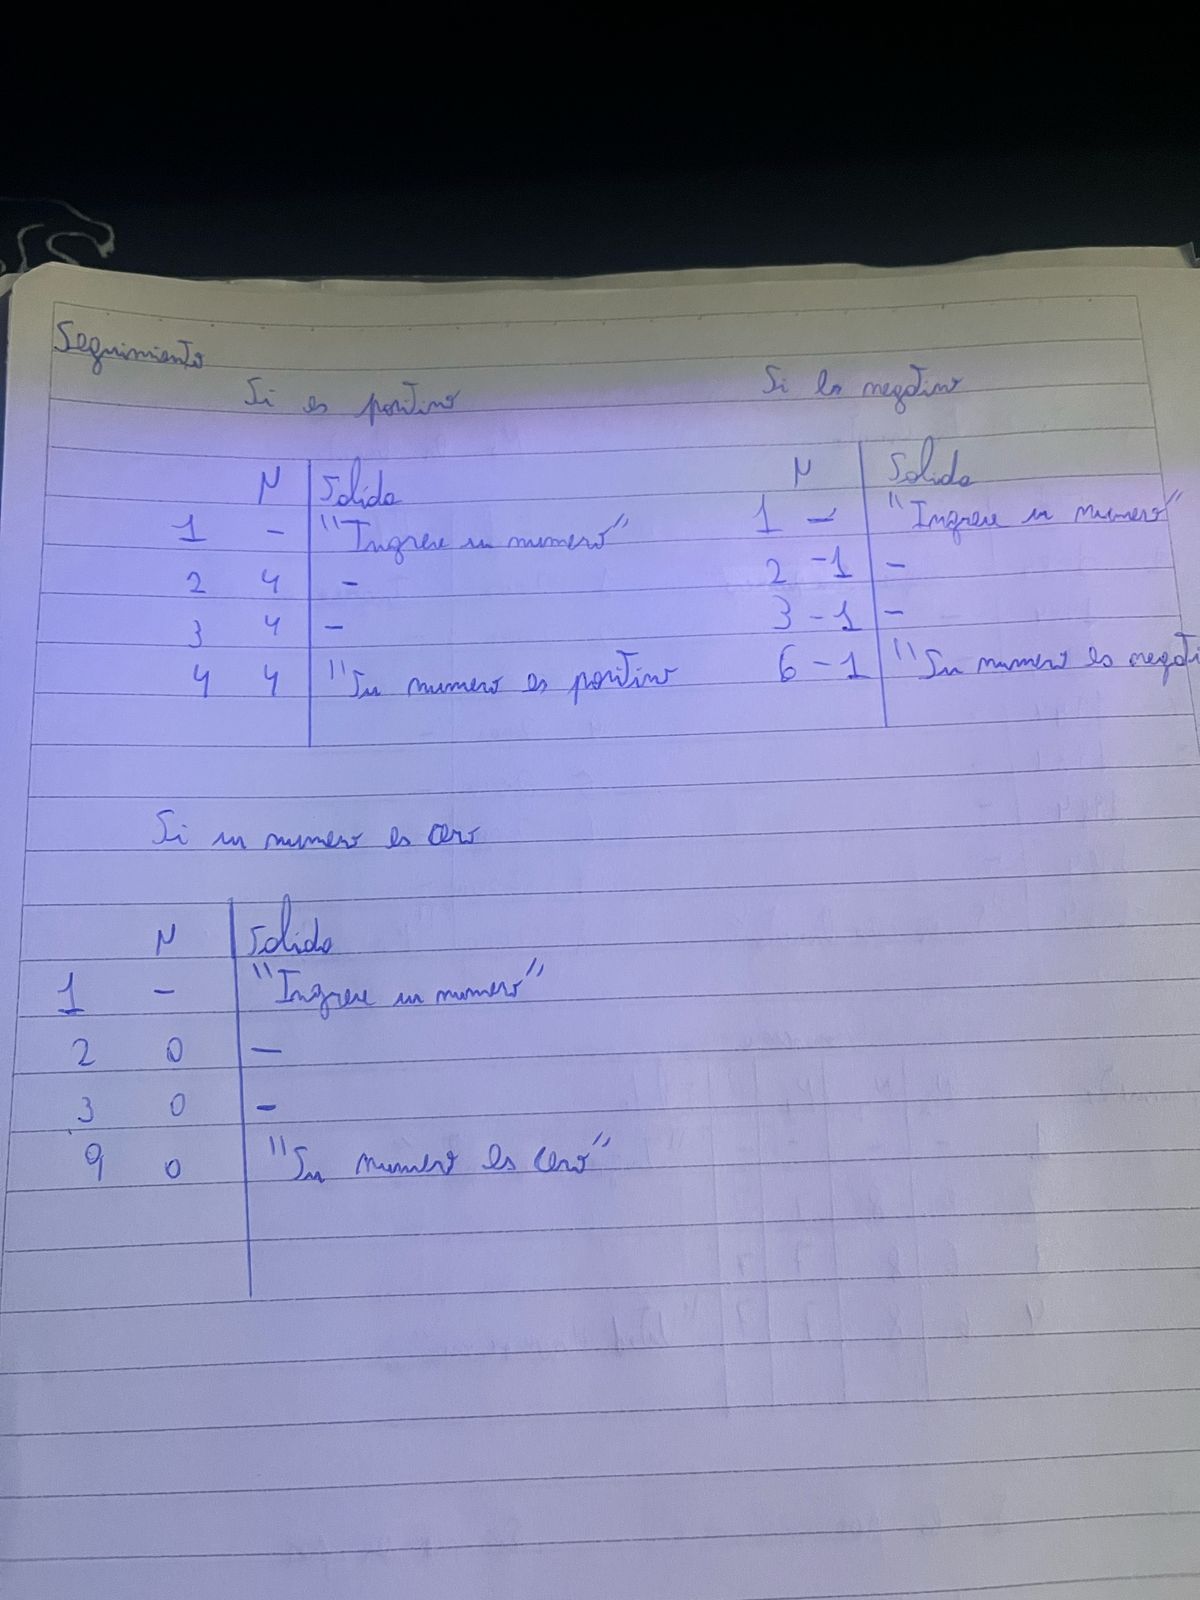 Seguimiento
Si es positivo
N Salida
1 - "Ingrese un numero"
2 4 -
3 4 -
4 4 "Su numero es positivo
Si es negativo
N Salida
1 - "Ingrese un numero"
2 -1 -
3 -1 -
6 -1 "Su numero es negati
Si un numero es cero
N Salida
1 - "Ingrese un numero"
2 0 -
3 0 -
9 0 "Su numero es cero"